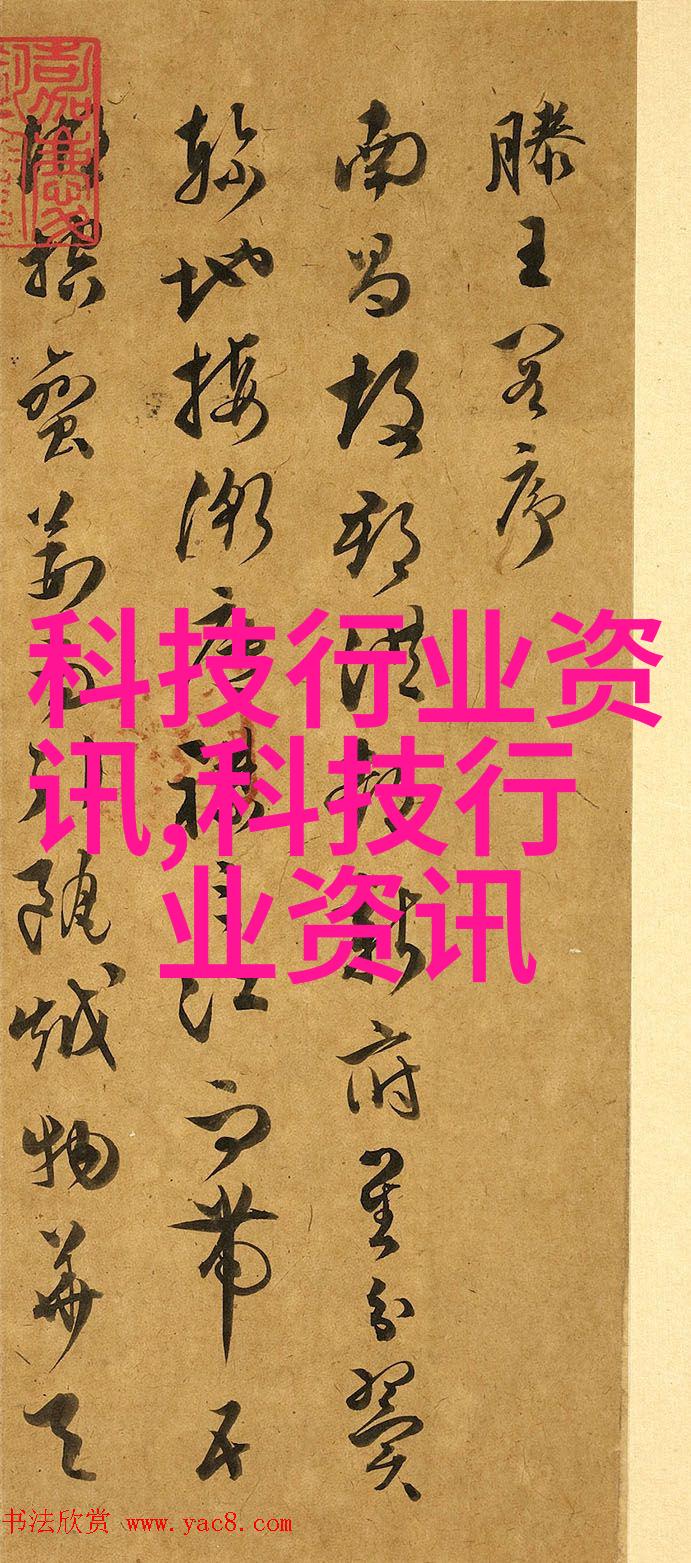 滕王閣序
南昌故郡洪都新府星分翼
軫地接衡廬襟三江而帶五
湖控蠻荊而引甌越物華天
科技行业资
讯,科技行
业资讯
书法欣赏 www.yac8.com